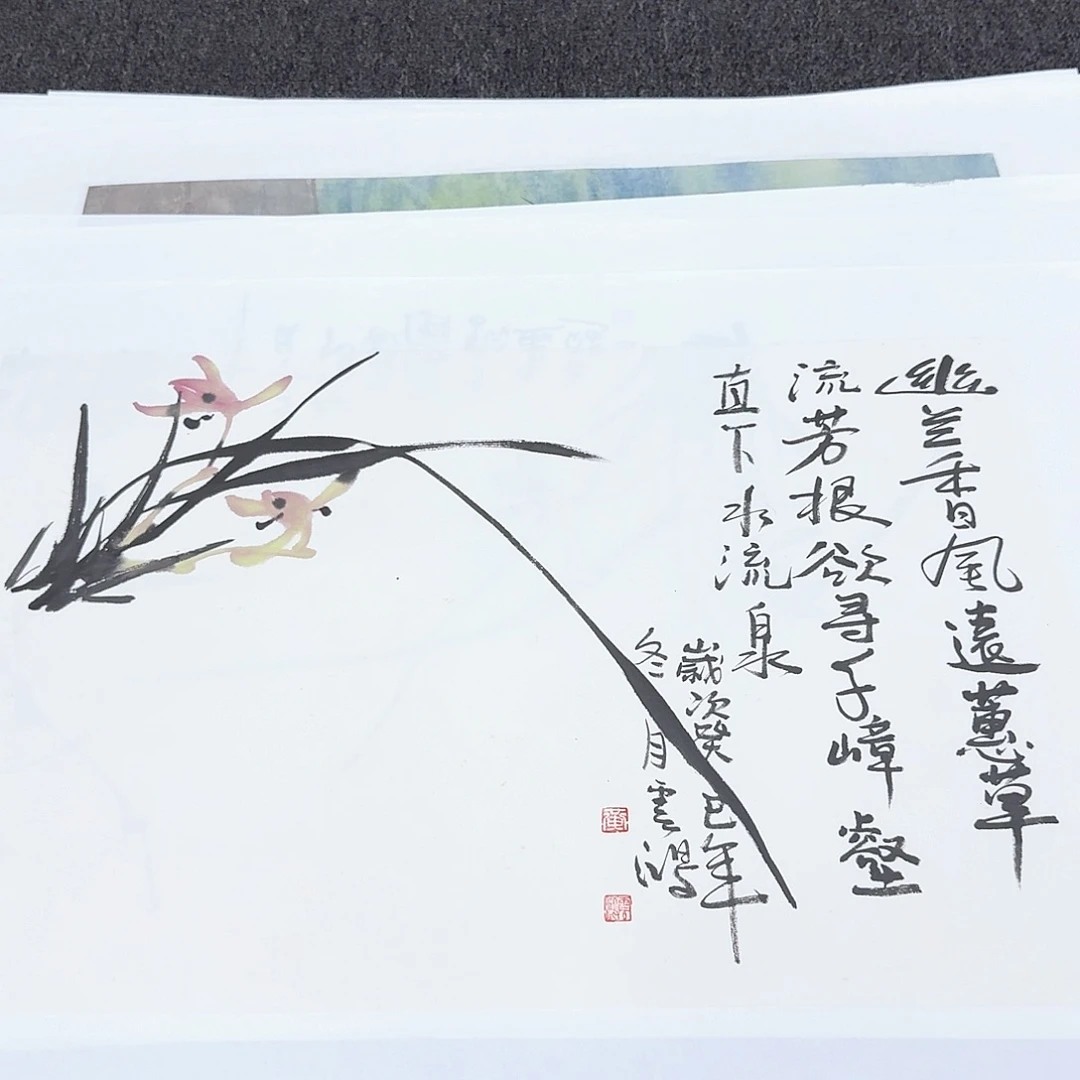 幽兰香風遠蕙草
流芳根欲寻千嶂壑
直下水流泉
歲次癸巳年
冬月雲鴻
黃